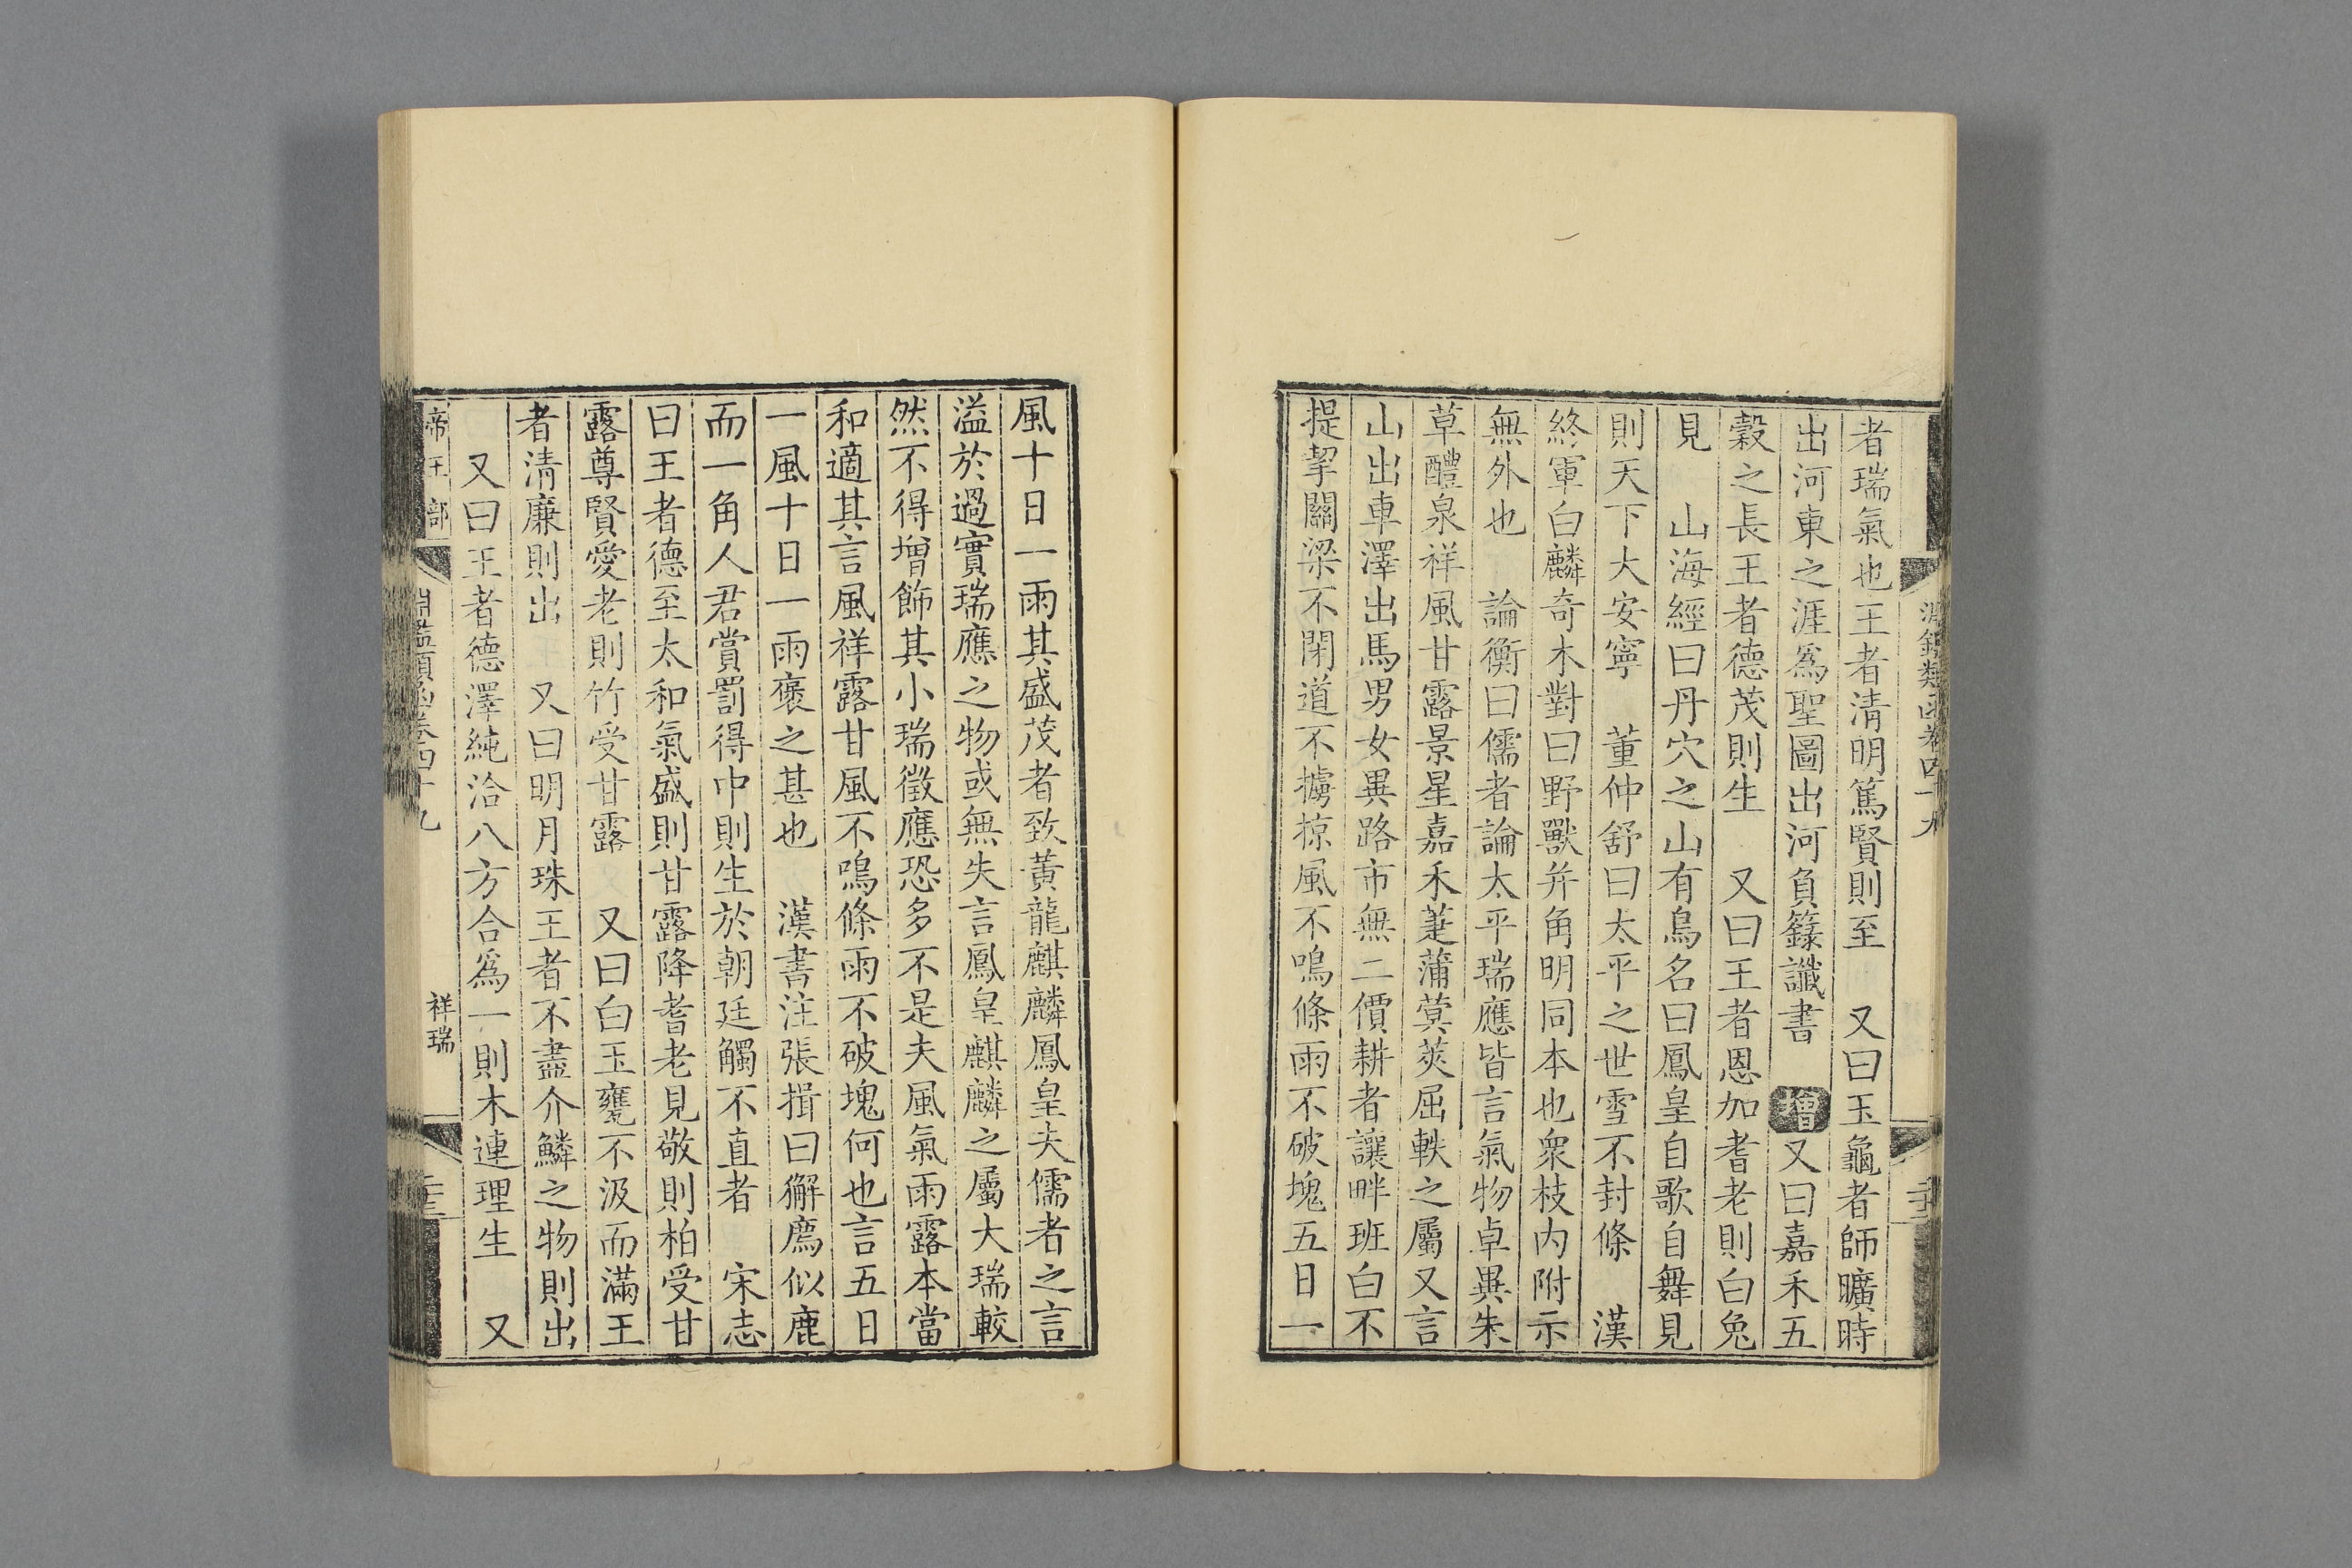 者瑞氣也王者清明篤賢則至　又曰玉龜者師曠時
出河東之涯爲聖圖出河負籙讖書　增又曰嘉禾五
穀之長王者德茂則生　又曰王者恩加耆老則白兔
見　山海經曰丹穴之山有鳥名曰鳳皇自歌自舞見
則天下大安寧　董仲舒曰太平之世雪不封條　漢
終軍白麟奇木對曰野獸并角明同本也衆枝内附示
無外也　論衡曰儒者論太平瑞應皆言氣物卓異朱
草醴泉祥風甘露景星嘉禾萐蒲蓂莢屈軼之屬又言
山出車澤出馬男女異路市無二價耕者讓畔班白不
提挈關梁不閉道不擄掠風不鳴條雨不破塊五日一
風十日一雨其盛茂者致黃龍麒麟鳳皇夫儒者之言
溢於過實瑞應之物或無失言鳳皇麒麟之屬大瑞較
然不得增飾其小瑞徵應恐多不是夫風氣雨露本當
和適其言風祥露甘風不鳴條雨不破塊何也言五日
一風十日一雨褒之甚也　漢書注張揖曰獬廌似鹿
而一角人君賞罰得中則生於朝廷觸不直者　宋志
曰王者德至太和氣盛則甘露降耆老見敬則柏受甘
露尊賢愛老則竹受甘露　又曰白玉甕不汲而滿王
者清廉則出　又曰明月珠王者不盡介鱗之物則出
又曰王者德澤純洽八方合爲一則木連理生　又
帝王部　淵鑑類函卷四十九　祥瑞